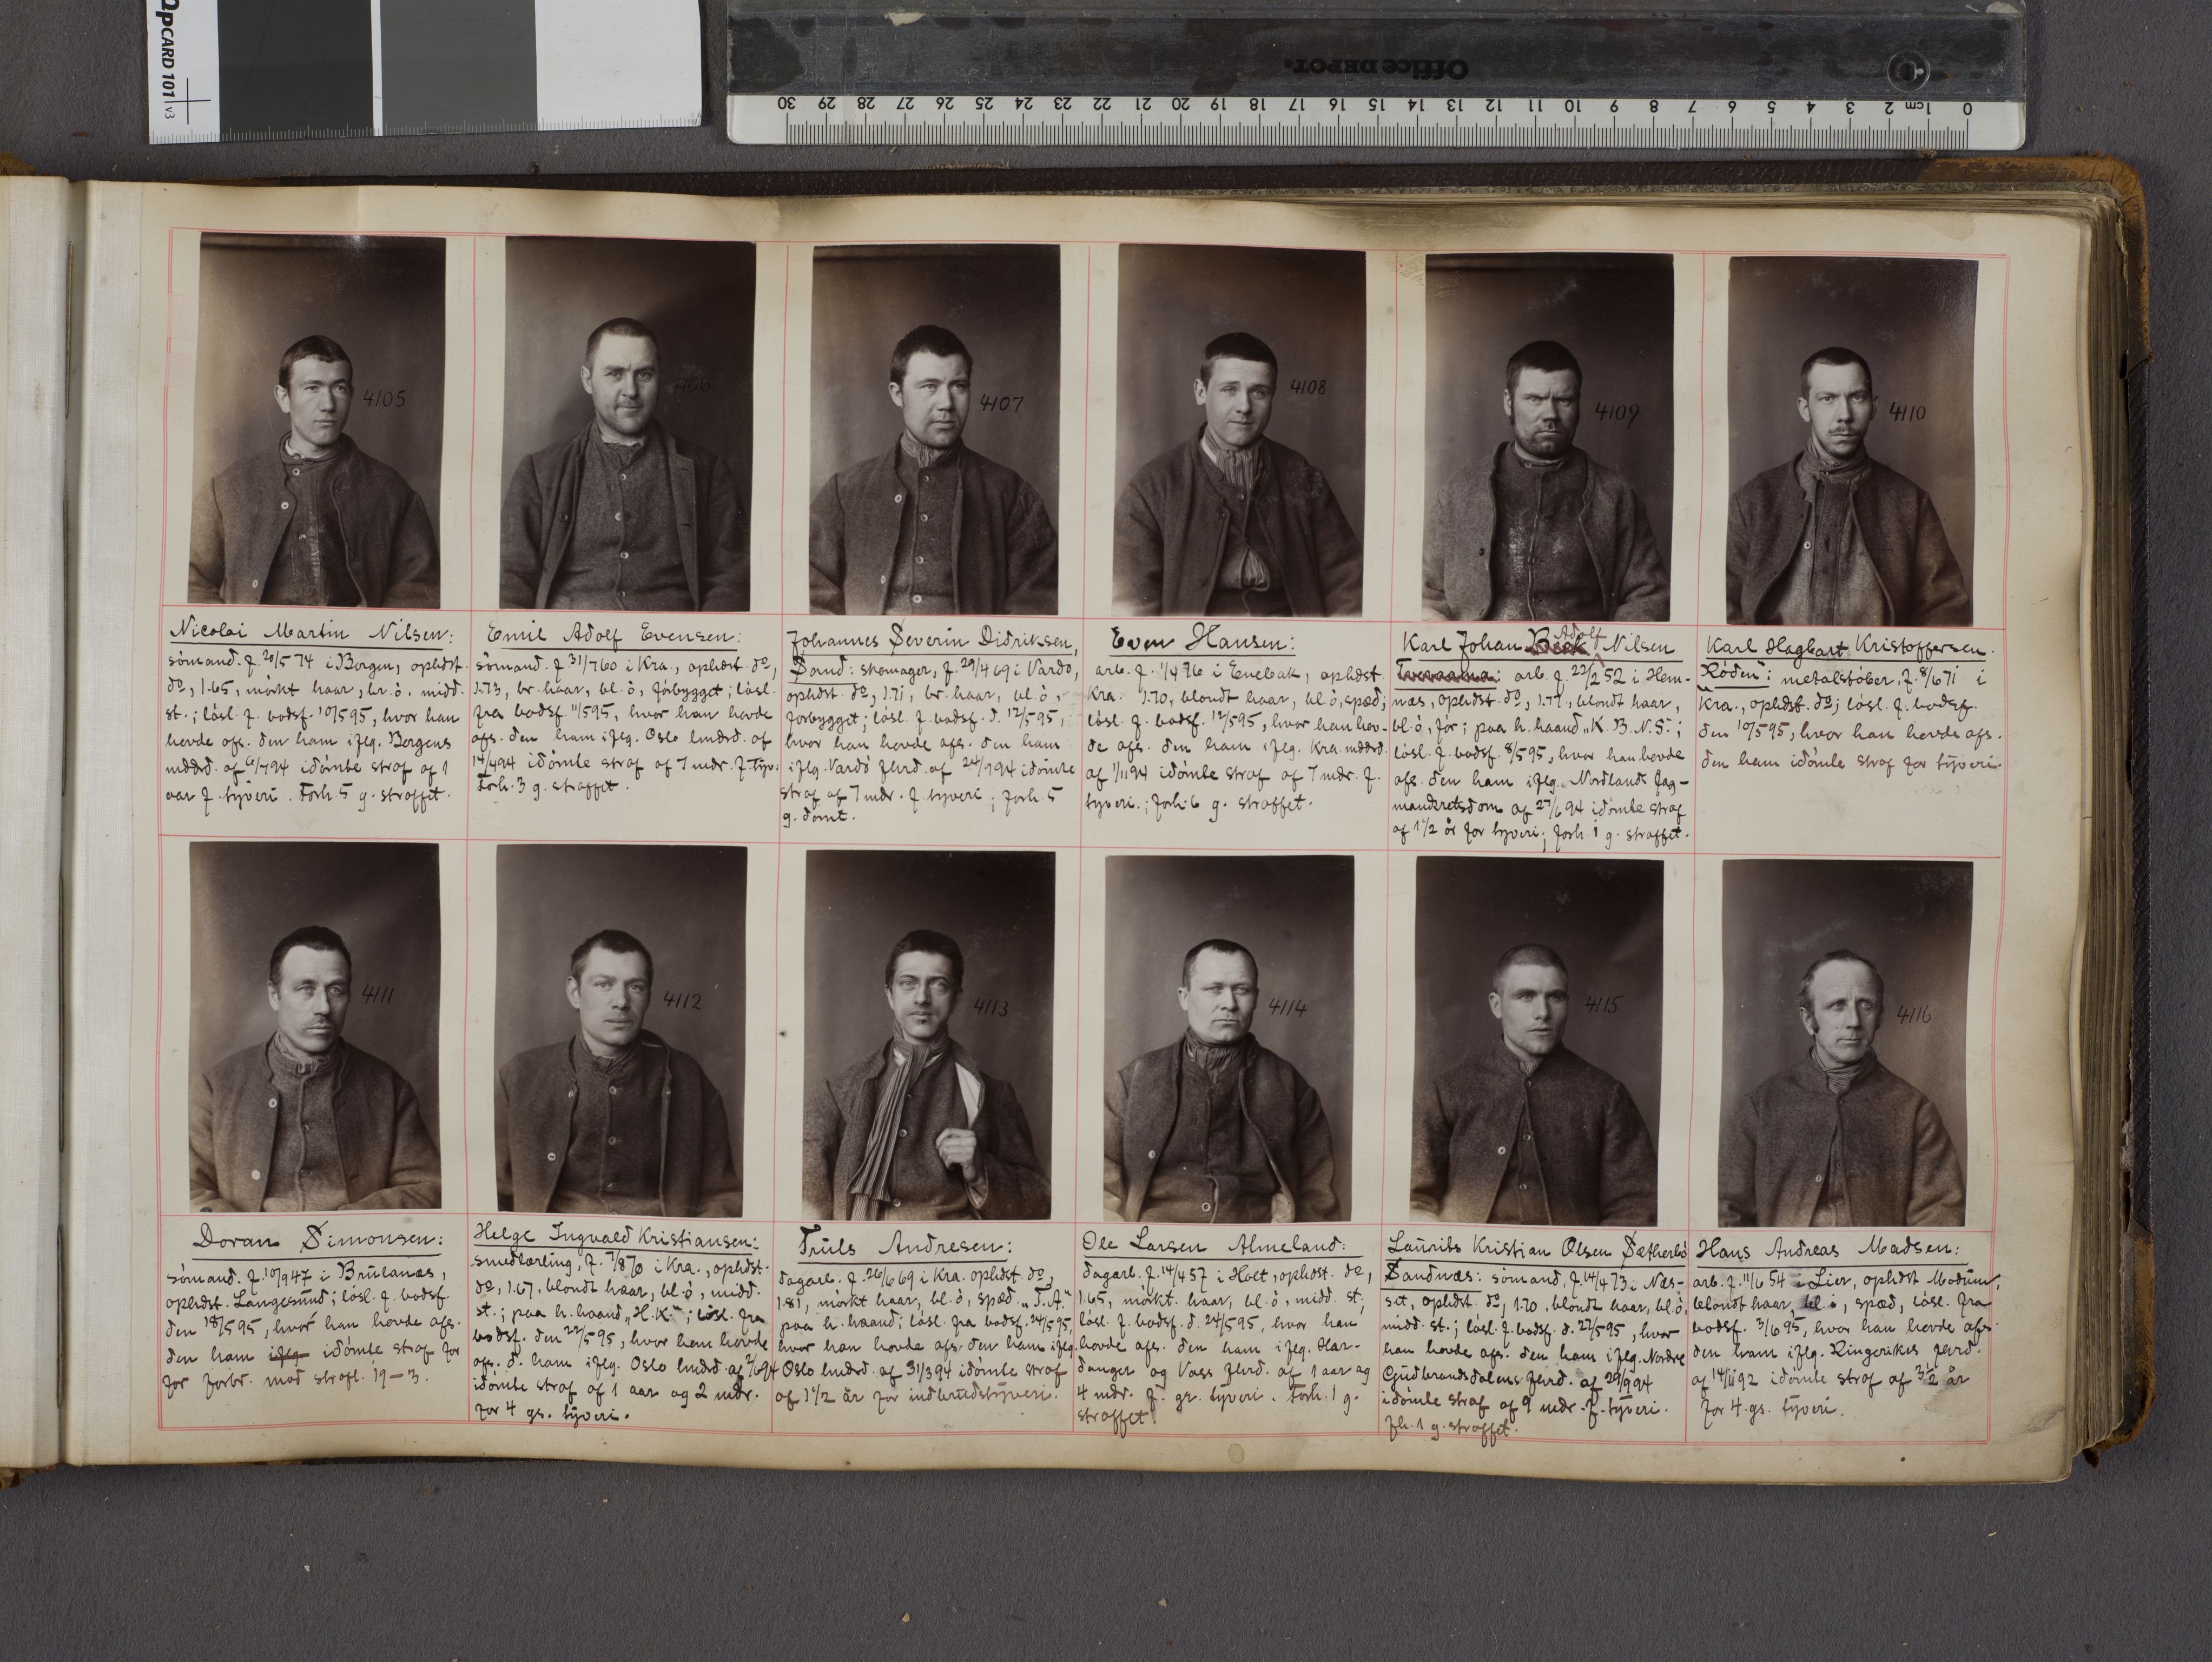 QPCARD 101 v3
Office DEPOT
0 1cm 2 3 4 5 6 7 8 9 10 11 12 13 14 15 16 17 18 19 20 21 22 23 24 25 26 27 28 29 30
4105
4106
4107
4108
4109
4110
Nicolai Martin Nilsen:
sömand. f. 20/5 74 i Bergen, ophdst.
do, 1.65, mörkt haar, br. ö. midd.
st.; lösl. f. bodsf. 10/5 95, hvor han
hevde afs. den ham iflg. Bergens
mddrd. af 6/7 94 idömte straf af 1
aar f. tyveri. Forh. 5 g. straffet.
Emil Adolf Evensen:
sömand. f 31/7 60 i Kra., ophdst. do,
1.73, br. haar, bl. ö, förbygget; lösl.
fra bodsf. 11/5 95, hvor han havde
afs. den ham iflg. Oslo lmdrd. af
14/4 94 idömte straf af 7 mdr. f. tyv.
Forh. 3 g. straffet.
Johannes Severin Didriksen,
Sand: skomager, f. 29/4 69 i Vardö,
ophdst do, 1.71, br. haar, bl. ö,
förbygget; lösl. f bodsf. d. 12/5 95,
hvor han havde afs. den ham
iflg. Vardö flrd. af 24/9 94 idömte
straf af 7 mdr. f. tyveri; forh. 5
g. dömt.
Even Hansen:
arb. f. 1/4 76 i Enebak, ophdst
Kra. 1.70, blondt haar, bl. ö, spæd;
lösl. f. bodsf. 12/5 95, hvor han hev-
de afs. den ham iflg. Kra. mddrd.
af 1/11 94 idömte straf af 7 mdr. f.
tyveri.; forh. 6 g. straffet.
Adolf
Karl Johan Beck Nilsen
Tveraama: arb. f. 22/2 52 i Hem-
næs, ophdst. do, 1.77, blondt haar,
bl. ö, för; paa h. haand „K. B. N. S."; 
lösl. f. bodsf. 8/5 95, hvor han hevde
afs. den ham iflg. Nordlands fag-
mandsretsdom af 27/6 94 idömte straf
af 1 1/2 år for tyveri; forh. 1 g. straffet.
Karl Hagbart Kristoffersen.
"Röden": metalstöber. f. 8/6 71 i
Kra., ophdst. do; lösl. f. bodsf.
den 10/5 95, hvor han hevde afs.
den ham idömte straf for tyveri.
4111
4112
4113
4114
4115
4116
Doran Simonsen:
sömand. f. 10/9 47 i Brulanæs,
ophdst. Langesund; lösl. f. bodsf.
den 18/5 95, hvor han hevde afs.
den ham iflg idömte straf for
for forbr. mod strafl. 19-3.
Helge Ingvald Kristiansen:
smedlærling, f. 7/8 70 i Kra., ophdst.
do, 1.67, blondt haar, bl. ö, midd.
st.; paa h. haand „H. K."; lösl. fra
bodsf. den 22/5 95, hvor han hevde
afs. d. ham iflg. Oslo lmdrd af 2/6 94
idömte straf af 1 aar og 2 mdr.
for 4 gs. tyveri.
Truls Andresen:
dagarb. f. 26/6 69 i Kra. ophdst do,
1.81, mörkt haar, bl. ö, spæd. „T. A."
paa h. haand; lösl. fra bodsf. 24/5 95,
hvor han hevde afs. den ham iflg.
Oslo lmdrd. af 31/3 94 idömte straf
af 1 1/2 år for indbrudstyveri.
Ole Larsen Almeland:
dagarb. f. 14/4 57 i Holt, ophdst. do,
1.65, mörkt. haar, bl. ö, midd. st.
lösl. f. bodsf. d. 24/5 95, hvor han
hevde afs. den ham iflg. Har-
danger og Voss flrd. af 1 aar og
4 mdr. f. gr. tyveri. Forh. 1 g.
straffet.
Laurits Kristian Olsen Sætherbö
Sandnæs: sömand, f. 14/4 73 i Næs-
set, ophdst. do, 1.70, blondt haar, bl. ö,
midd. st.; lösl. f. bodsf. d. 27/5 95, hvor
han hevde afs. den ham iflg. Nordre
Gudbrandsdalens flrd. af 29/9 94
idömte straf af 9 mdr. f. tyveri.
fh. 1 g. straffet.
Hans Andreas Madsen:
arb. f. 11/6 54 i Lier, ophdst Modum,
blondt haar, bl. ö, spæd, lösl. fra
bodsf. 3/6 95, hvor han hevde afs.
den ham iflg. Ringerikes flrd.
af 14/11 92 idömte straf af 3 1/2 år
for 4. gs. tyveri.